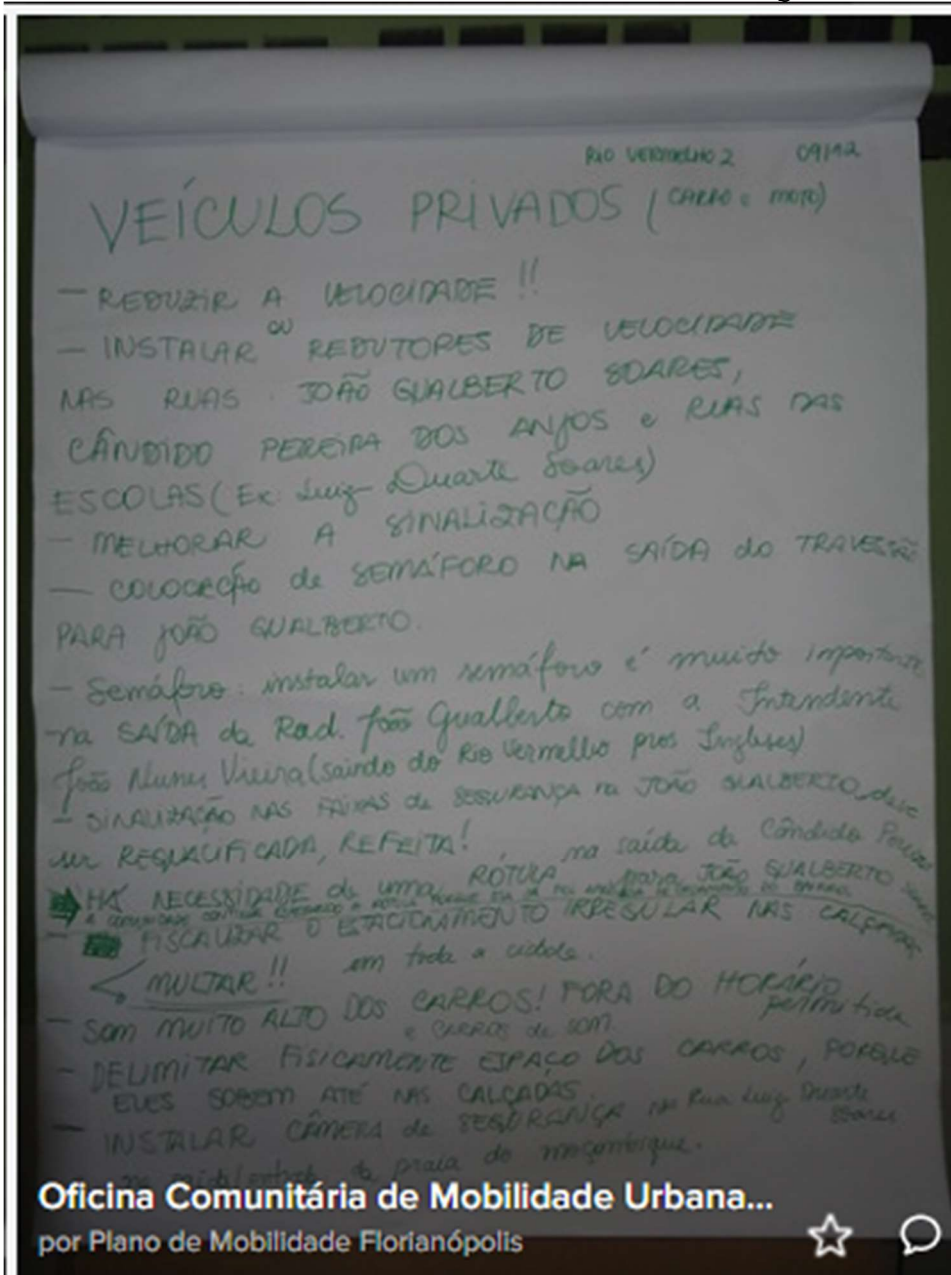 RIO VERMELHO 2 09/12
VEÍCULOS PRIVADOS (CARRO e MOTO)
- REDUZIR A VELOCIDADE!!
ou
- INSTALAR REDUTORES DE VELOCIDADE
NAS RUAS JOÃO GUALBERTO SOARES,
CÂNDIDO PEREIRA DOS ANJOS e RUAS DAS
ESCOLAS (Ex: Luiz Duarte Soares)
- MELHORAR A SINALIZAÇÃO
- COLOCAÇÃO de SEMÁFORO NA SAÍDA do TRAVESSÃO
PARA JOÃO GUALBERTO.
- Semáforo: instalar um semáforo é muito importante
na SAÍDA da Rod. João Gualberto com a Intendente
João Nunes Vieira (saindo do Rio Vermelho pros Ingleses)
- SINALIZAÇÃO NAS FAIXAS de SEGURANÇA na JOÃO GUALBERTO, deve
ser REQUALIFICADA, REFEITA!
na saída da Cândido Pereira
HÁ NECESSIDADE de uma RÓTULA para JOÃO GUALBERTO SOARES
A COMUNIDADE CONTINUA A RÓTULA PORQUE JÁ FOI DO BAIRRO.
- FISCALIZAR O ESTACIONAMENTO IRREGULAR NAS CALÇADAS
MULTAR!! em toda a cidade.
- SOM MUITO ALTO DOS CARROS! FORA DO HORÁRIO
permitido
e CARROS de SOM.
- DELIMITAR FISICAMENTE ESPAÇO DOS CARROS, PORQUE
ELES SOBEM ATÉ NAS CALÇADAS.
- INSTALAR CÂMERA de SEGURANÇA na Rua Luiz Duarte
Soares
da praia do moçambique.
Oficina Comunitária de Mobilidade Urbana...
por Plano de Mobilidade Florianópolis